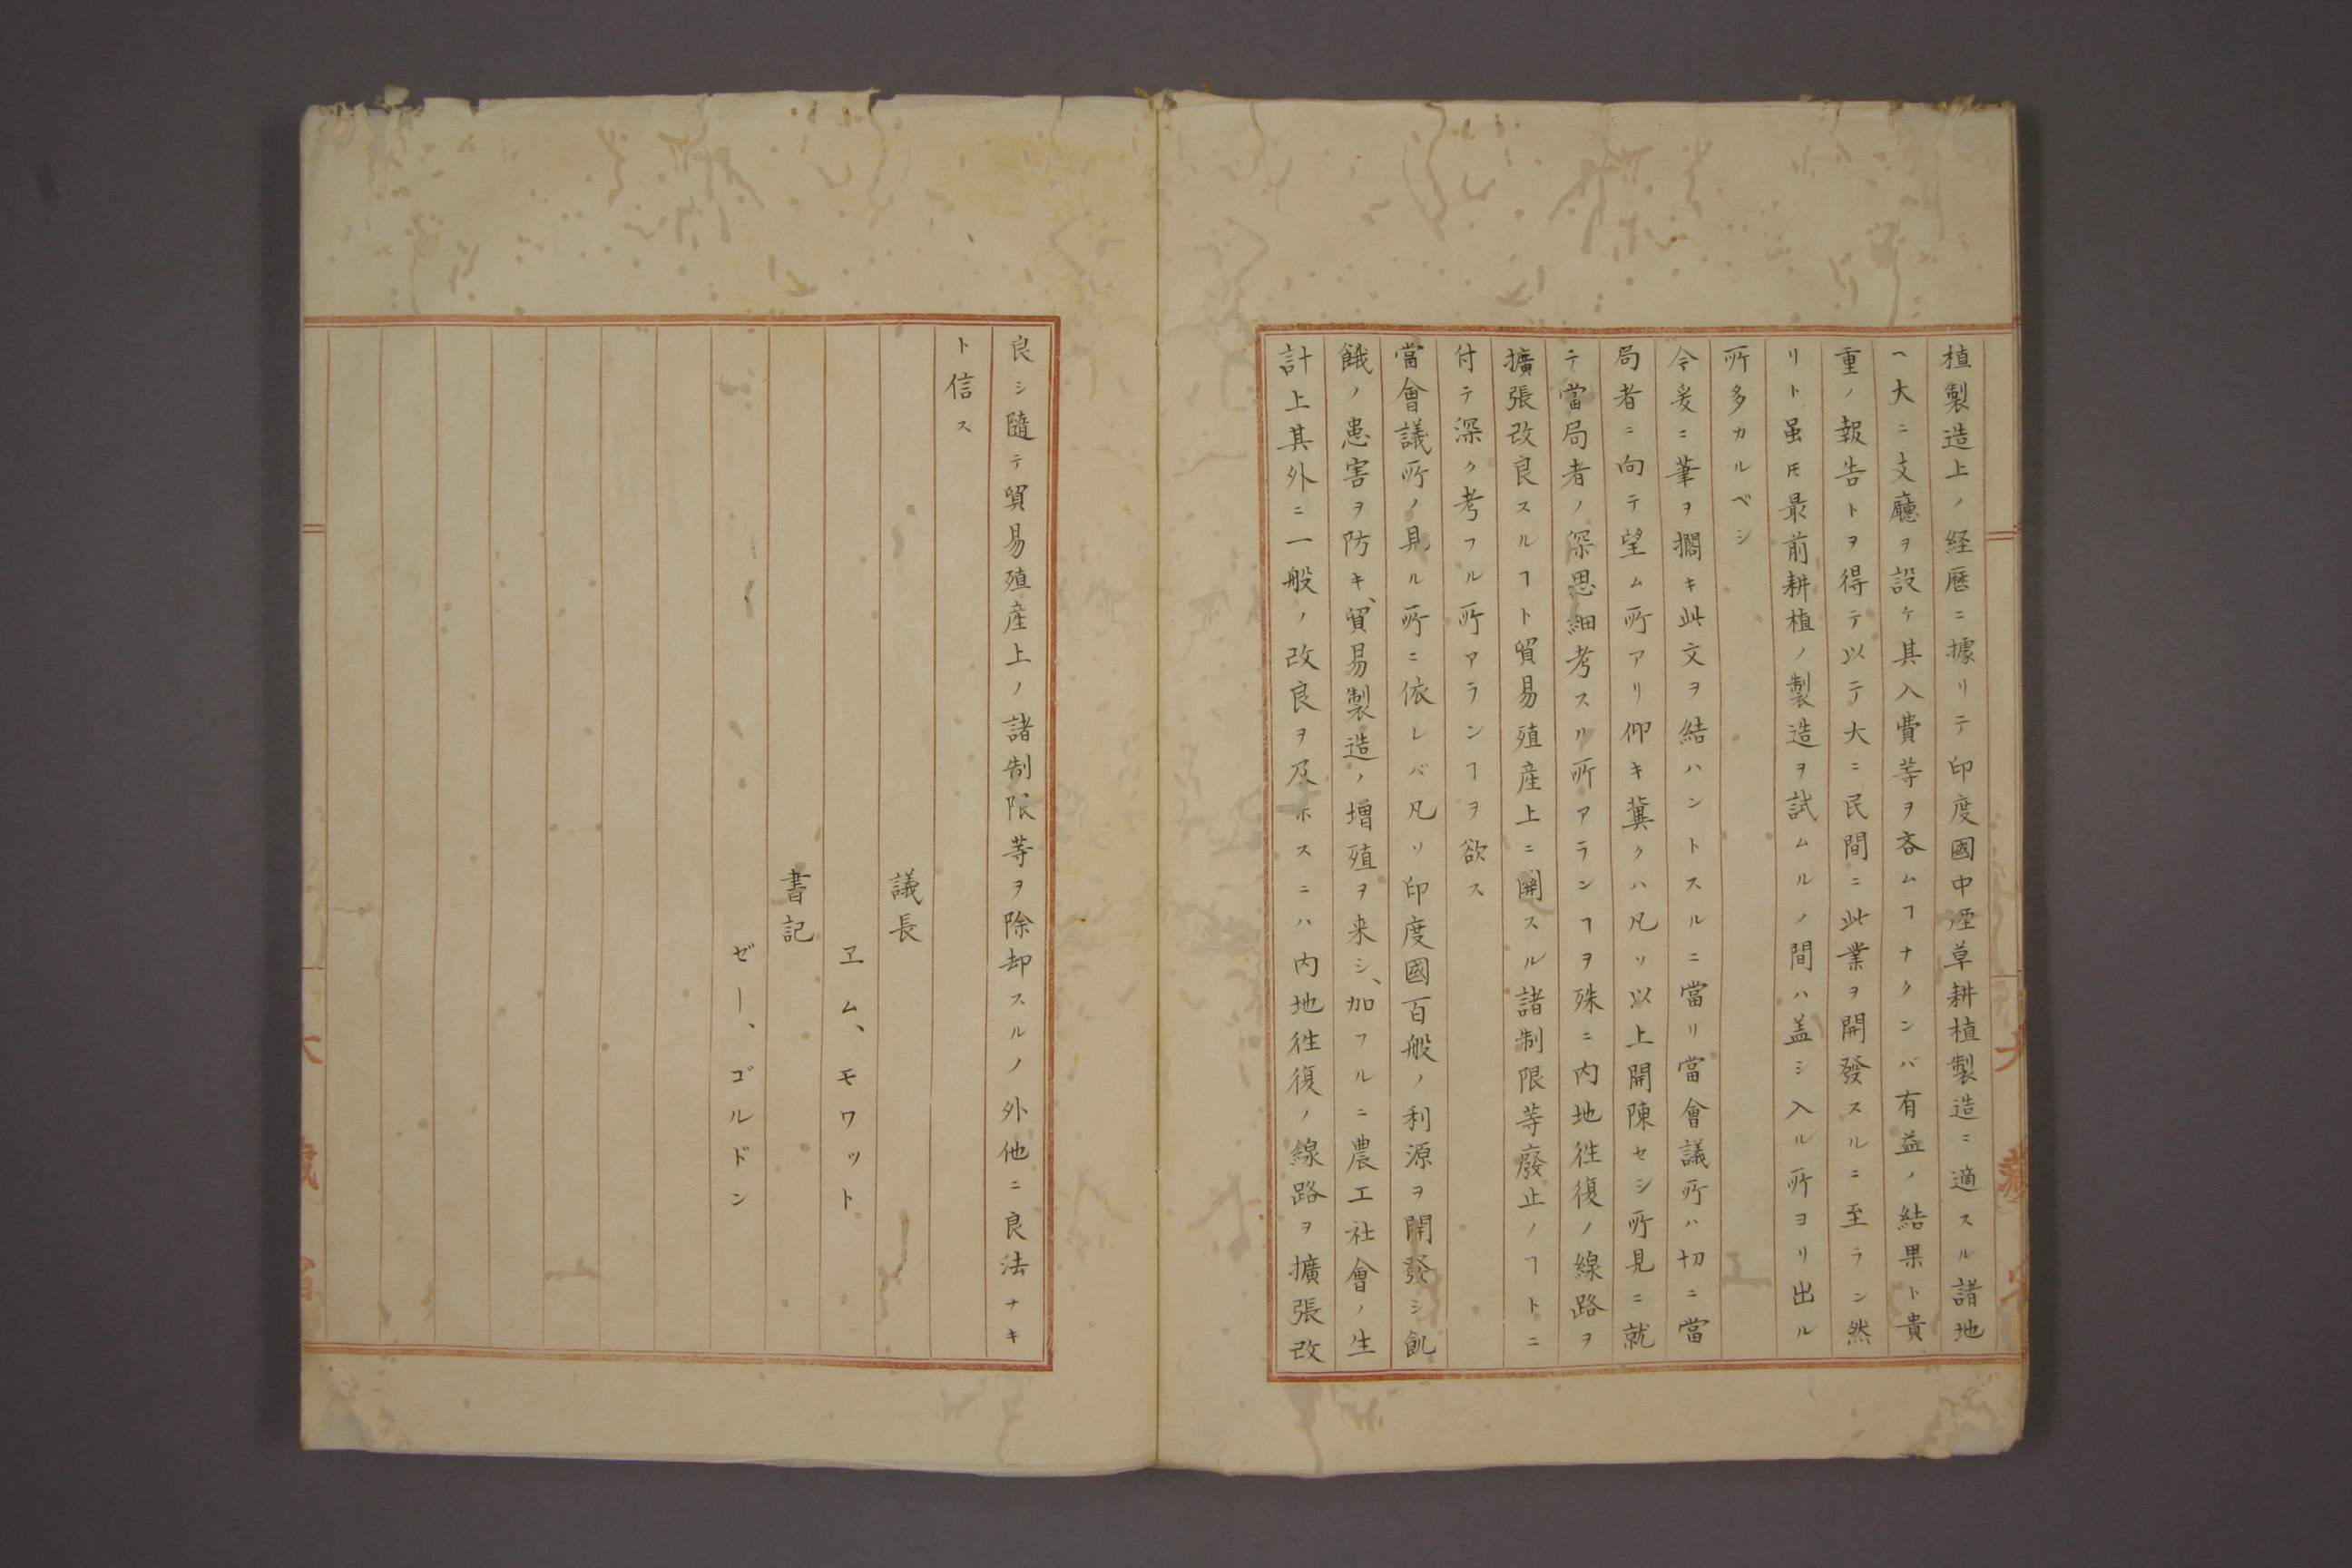 植製造上ノ経歴ニ據リテ印度國中煙草耕植製造ニ適スル諸地
ヘ大ニ支廳ヲ設ケ其入費等ヲ吝ムヿナクンバ有益ノ結果ト貴
重ノ報告トヲ得テ以テ大ニ民間ニ此業ヲ開發スルニ至ラン然
リト虽𪜈最前耕植ノ製造ヲ試ムルノ間ハ盖シ入ル所ヨリ出ル
所多カルベシ
今爰ニ筆ヲ擱キ此文ヲ結ハントスルニ當リ當會議所ハ切ニ當
局者ニ向テ望ム所アリ仰キ冀クハ凡ソ以上開陳セシ所見ニ就
テ當局者ノ深思細考スル所アランヿヲ殊ニ内地徃復ノ線路ヲ
擴張改良スルヿト貿易殖産上ニ関スル諸制限等廢止ノヿトニ
付テ深ク考フル所アランヿヲ欲ス
當會議所ノ見ル所ニ依レバ凡ソ印度國百般ノ利源ヲ開發シ飢
餓ノ患害ヲ防キ、貿易製造ノ増殖ヲ来シ、加フルニ農工社會ノ生
計上其外ニ一般ノ改良ヲ及ホスニハ内地徃復ノ線路ヲ擴張改
良シ隨テ貿易殖産上ノ諸制限等ヲ除却スルノ外他ニ良法ナキ
ト信ス
議長
ヱム、モワット
書記
ゼー、ゴルドン
大藏省